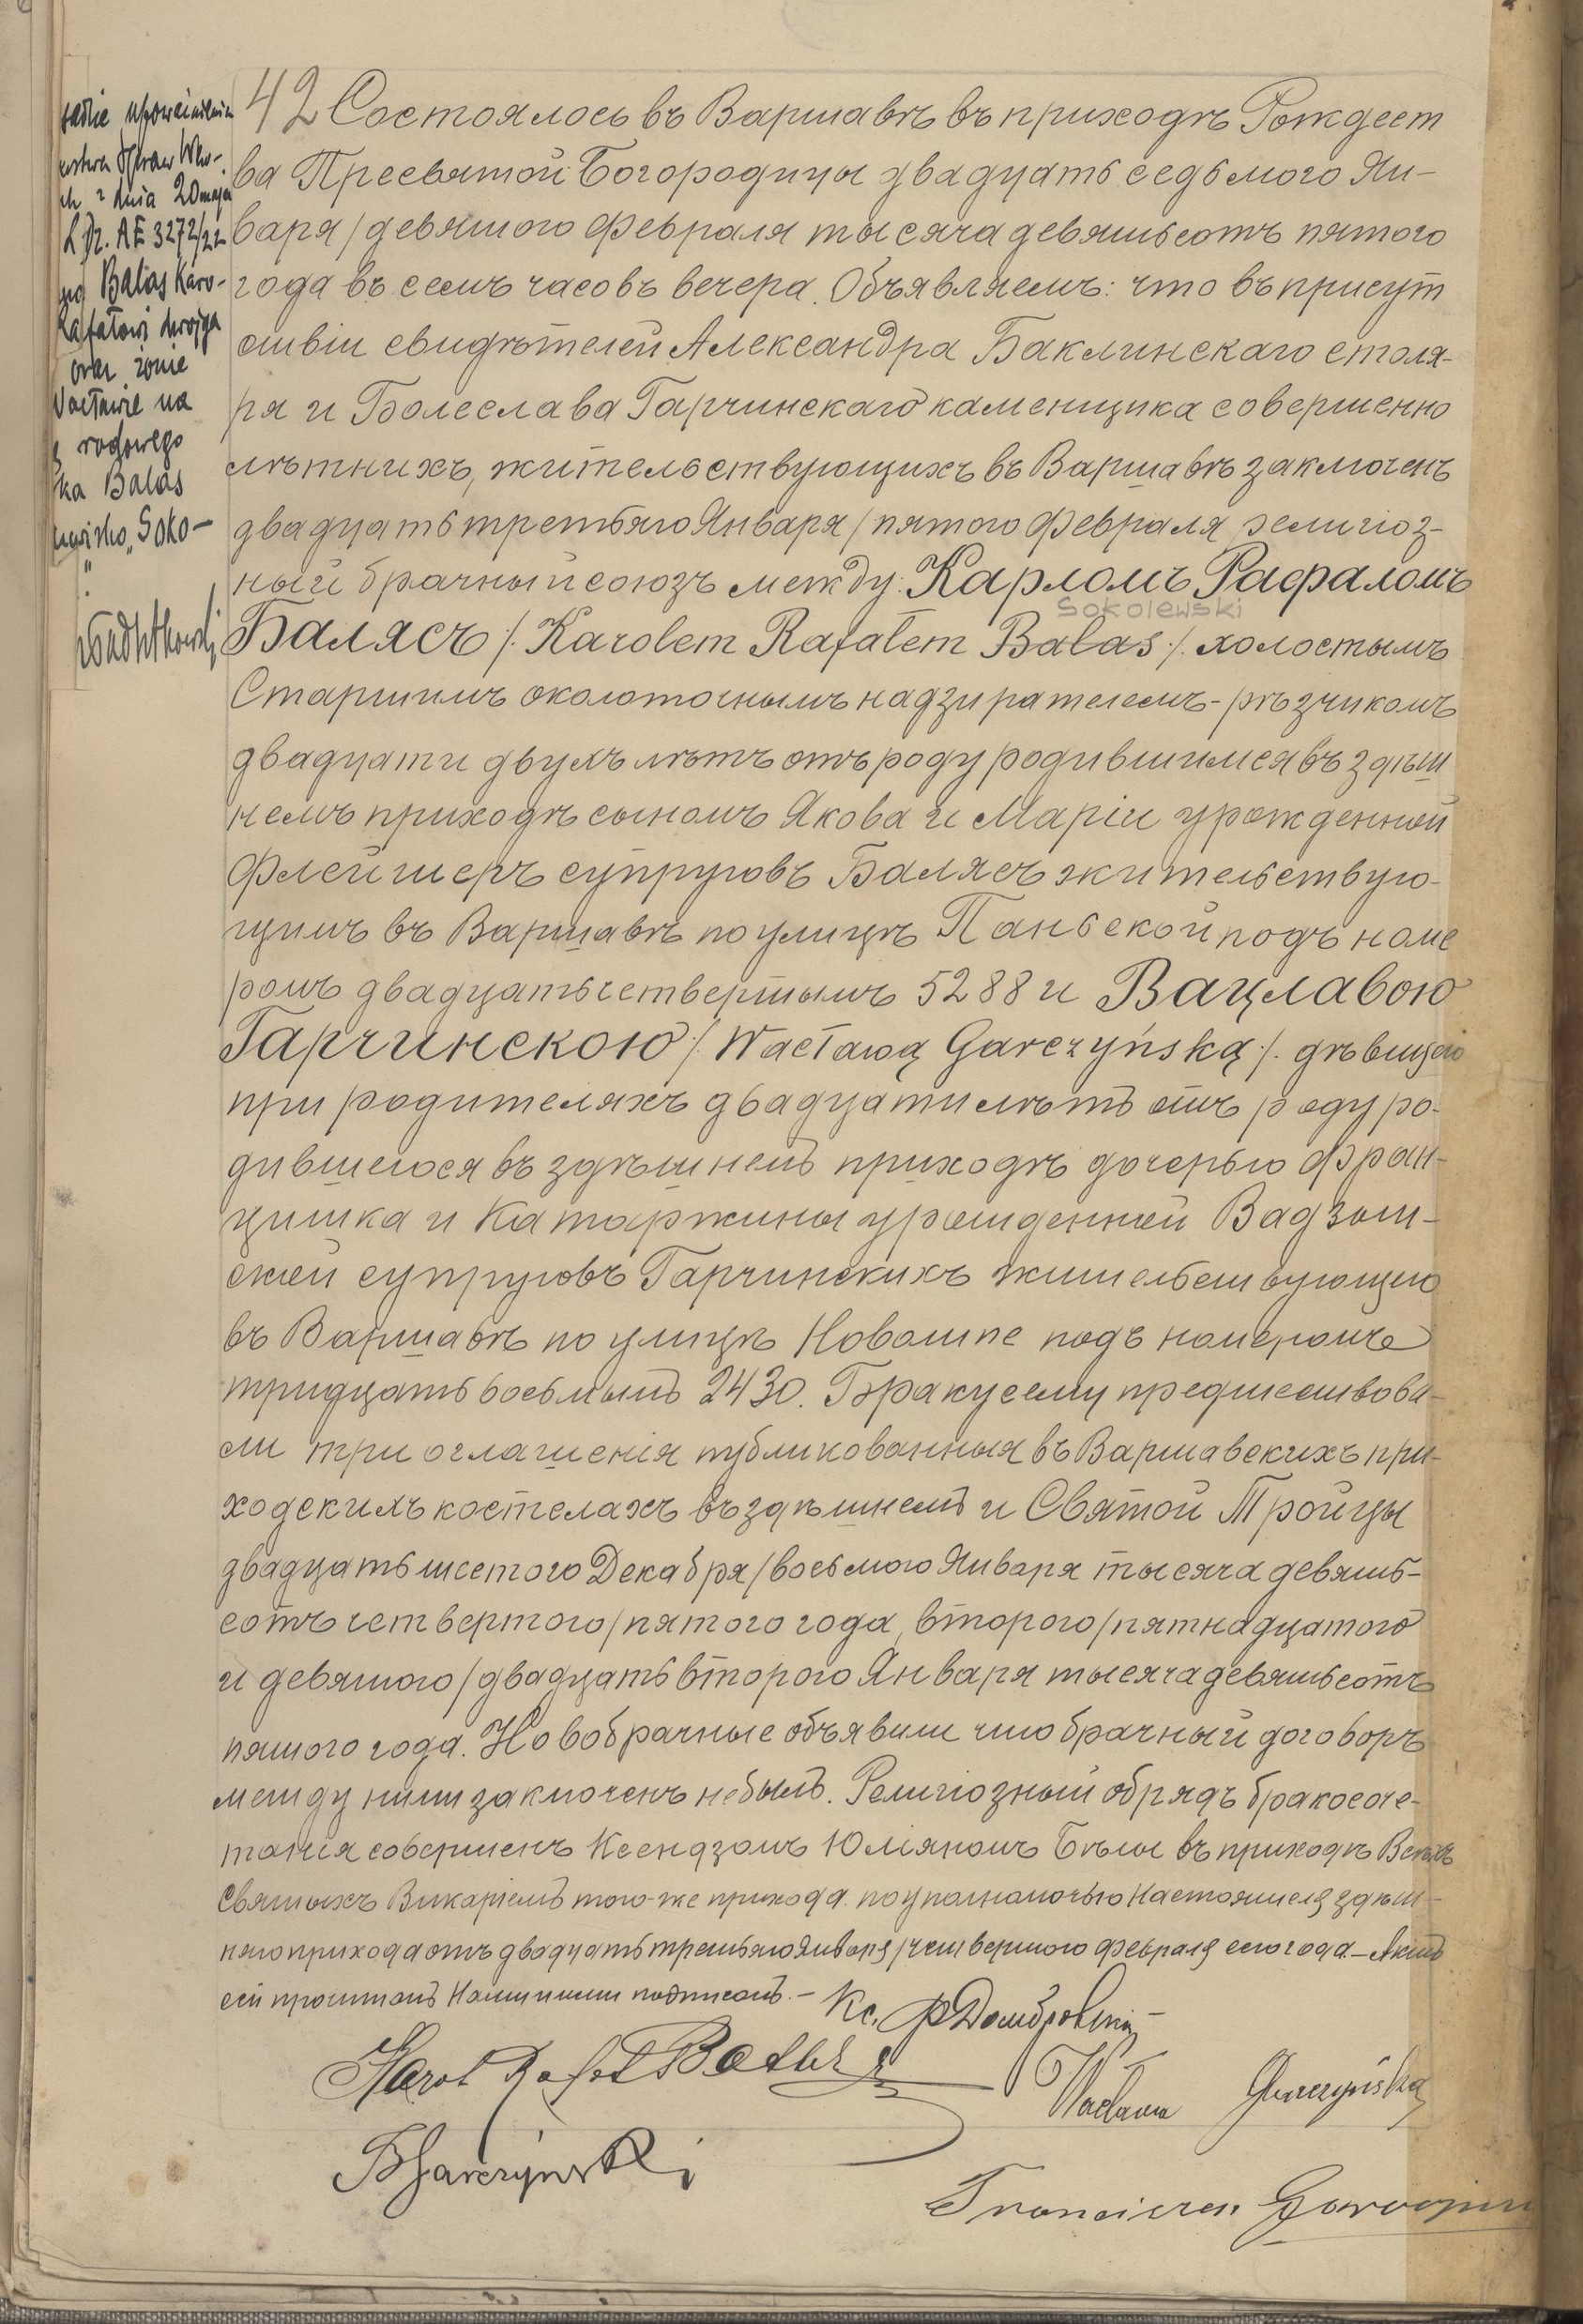 42 Состоялось въ Варшавѣ въ приходѣ Рождест
ва Пресвятой Богородицы двадцать седьмого Ян-
варя / девятого Февраля тысяча девятьсотъ пятого
года въ семь часовъ вечера. Объявляемъ: что въ присут
ствіи свидѣтелей Александра Баклинскаго столя-
ря и Болеслава Гарчинскаго каменщика совершенно
лѣтнихъ, жительствующихъ въ Варшавѣ заключенъ
двадцать третьяго Января / пятого Февраля религіоз-
ный брачный союзъ между: Карломъ Рафаломъ
Sokolewski
Балясъ /. Karolem Rafałem Balas ./. холостымъ
Старшимъ околоточнымъ надзирателемъ - рѣзчикомъ
двадцати двухъ лѣтъ отъ роду родившимся въ здѣш
немъ приходѣ сыномъ Якова и Маріи урожденной
Флейшеръ супруговъ Балясъ жительствую-
щимъ въ Варшавѣ по улицѣ Паньской подъ номе
ромъ двадцать четвертымъ 5288 и Вацлавою
Гарчинскою /. Wacławą Garczyńską ./. дѣвицею
при родителяхъ двадцати лѣтъ отъ роду ро-
дившеюся въ здѣшнемъ приходѣ дочерью Фран-
цишка и Катаржины урожденной
супруговъ Гарчинскихъ жительствующею
въ Варшавѣ по улицѣ Новолипе подъ номеромъ
тридцать восьмымъ 2430. Браку сему предшествова-
ли три оглашенія публикованныя въ Варшавскихъ при-
ходскихъ костелахъ въ здѣшнемъ и Святой Тройцы
двадцать шестого Декабря / восьмого Января тысяча девять-
сотъ четвертого / пятого года, второго / пятнадцатого
и девятого / двадцать второго Января тысяча девятьсотъ
пятого года. Новобрачные объявили что брачный договоръ
между ними заключенъ небылъ. Религіозный обрядъ бракосоче-
танія совершенъ Ксендзомъ Юліяномъ въ приходѣ Всѣхъ
Святыхъ Викаріемъ того-же прихода по уполномочью Настоятеля здѣш-
няго прихода отъ двадцать третьяго Января / четвертого Февраля сего года. – Актъ
сей прочитанъ Нами и ими подписанъ. –
Кс. Ф Домбровскій
Karol Rafał Balas
Wacława Garczyńska
B Garczyński
Franciszek
z dnia 20 maja
L. Dz. AE 3272/22
Balas Karo-
Rafałowi dwojga
oraz żonie
Wacławie na
rodowego
ka Balas
„Soko-